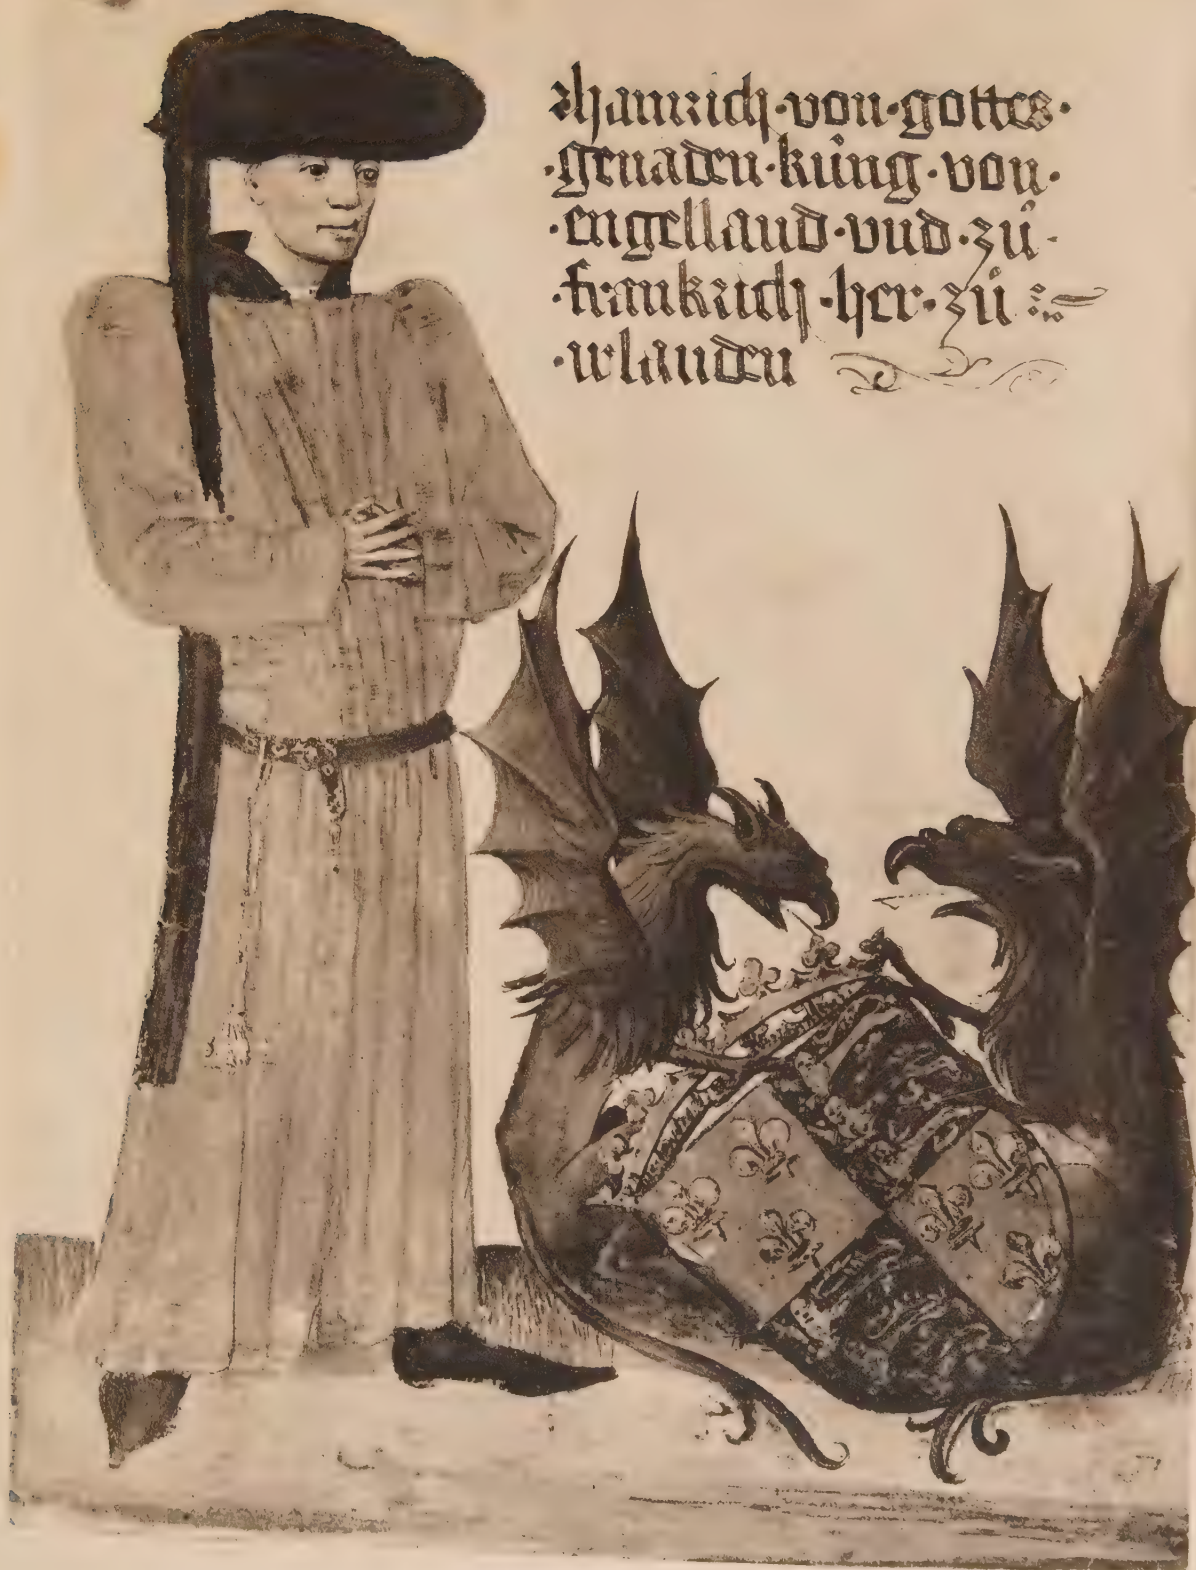 hainrich·von·gottes·
·genaden·küng·von·
·engelland·vnd·zů·
·frankrich·her·zů
·irlanden